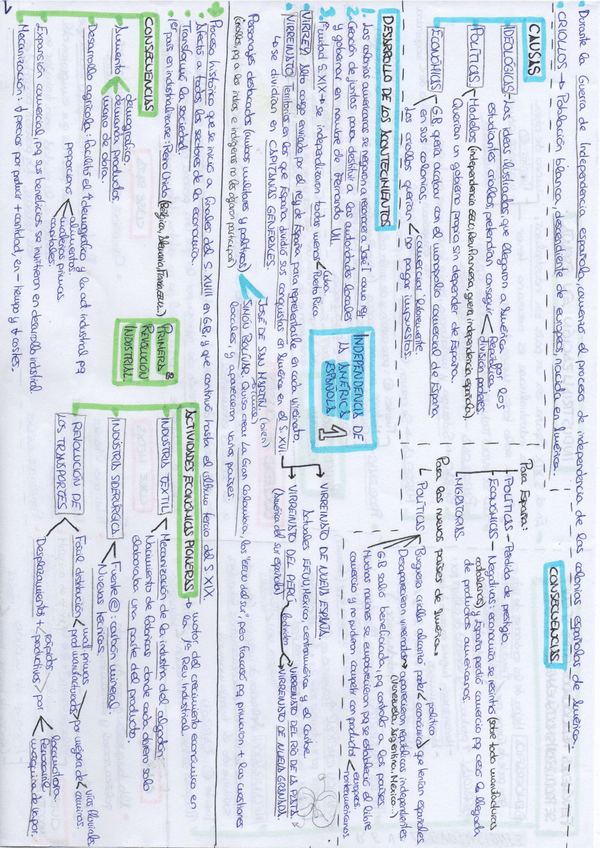 • Durante la Guerra de Independencia española, comenzó el proceso de independencia de las colonias españolas de América.
• CRIOLLOS → Población blanca, descendiente de europeos, nacida en América.
CAUSAS
IDEOLÓGICAS - Las ideas ilustradas que llegaron a América por los
estudiantes criollos, pretendían conseguir < República
división poderes
POLÍTICAS - Modelos (independencia EEUU, Rev. francesa, guerra independencia española)
Querían un gobierno propio sin depender de España.
ECONÓMICAS - G.B quería acabar con el monopolio comercial de España
en sus colonias.
Los criollos querían < comerciar libremente.
no pagar impuestos.
CONSECUENCIAS
Para España:
POLÍTICAS - Pérdida de prestigio
ECONÓMICAS - Negativas: economía se resintió (sobre todo manufacturas
catalanas) y España perdió comercio pq cesó la llegada
de productos americanos.
MIGRATORIAS.
Para los nuevos países de América:
POLÍTICAS
Burguesía criolla alcanzó poder < político
económico que tenían españoles
Desaparecieron virreinatos y aparecieron repúblicas independientes:
(Venezuela, Argentina, México...)
G.B salió beneficiada, pq controló a los países
Muchas naciones se empobrecieron pq se estableció el libre
comercio y no pudieron competir con productos < europeos.
norteamericanos
DESARROLLO DE LOS ACONTECIMIENTOS
1. Las colonias americanas se negaron a reconocer a José I como rey
2. Creación de juntas para destituir a las autoridades locales
y gobernar en nombre de Fernando VII.
3. 1ª mitad S. XIX → se independizaron todas menos < Cuba
Puerto Rico
INDEPENDENCIA DE
LA AMÉRICA
ESPAÑOLA
1
• VIRREY: Alto cargo enviado por el rey de España, para representarle en cada virreinato.
• VIRREINATO: Territorios en los que España dividió sus conquistas en América en el S. XVI
↳ se dividían en CAPITANÍAS GENERALES.
VIRREINATO DE NUEVA ESPAÑA.
Actuales EEUU, México, centroamérica y el Caribe
VIRREINATO DEL PERÚ
(América del sur española)
VIRREINATO DEL RÍO DE LA PLATA.
VIRREINATO DE NUEVA GRANADA.
Personajes destacados (ambos militares y políticos)
(criollos, pq a los indios e indígenas no les dejaron participar)
JOSÉ DE SAN MARTÍN
SIMÓN BOLÍVAR: Quiso crear La Gran Colombia
locales y aparecieron varios países.
• Proceso histórico que se inició a finales del S. XVIII en G.B, y que continuó hasta el último tercio del S. XIX
• Afectó a todos los sectores de la economía.
• Transformó la sociedad.
• 1er país en industrializarse: Reino Unido (Bélgica, Alemania, Francia, EEUU...)
PRIMERA
REVOLUCIÓN
INDUSTRIAL
2
CONSECUENCIAS
Aumento < demográfico
demanda productos
mano de obra.
Desarrollo agrícola: Facilitó el ↑ demográfico y la act. industrial pq
proporcionó < alimentos
materias primas
capitales.
Expansión comercial, pq sus beneficios se invirtieron en desarrollo industrial
Mecanización: ↓ precios por producir + cantidad, en - tiempo y ↓ costes.
ACTIVIDADES ECONÓMICAS PIONERAS → motor del crecimiento económico en
la 1ª Rev. industrial.
INDUSTRIA TEXTIL
Mecanización de la industria del algodón
Nacimiento de fábricas donde cada obrero solo
elaboraba una parte del producto
INDUSTRIA SIDERÚRGICA
Fuente @: carbón mineral
Nuevas técnicas.
REVOLUCIÓN DE
LOS TRANSPORTES
Fácil distribución < mat. primas
prod. manufacturados > por mejora de < vías fluviales
caminos
Desplazamientos + < rápidos
productivos > por < locomotora.
ferrocarril
máquina de vapor.
1